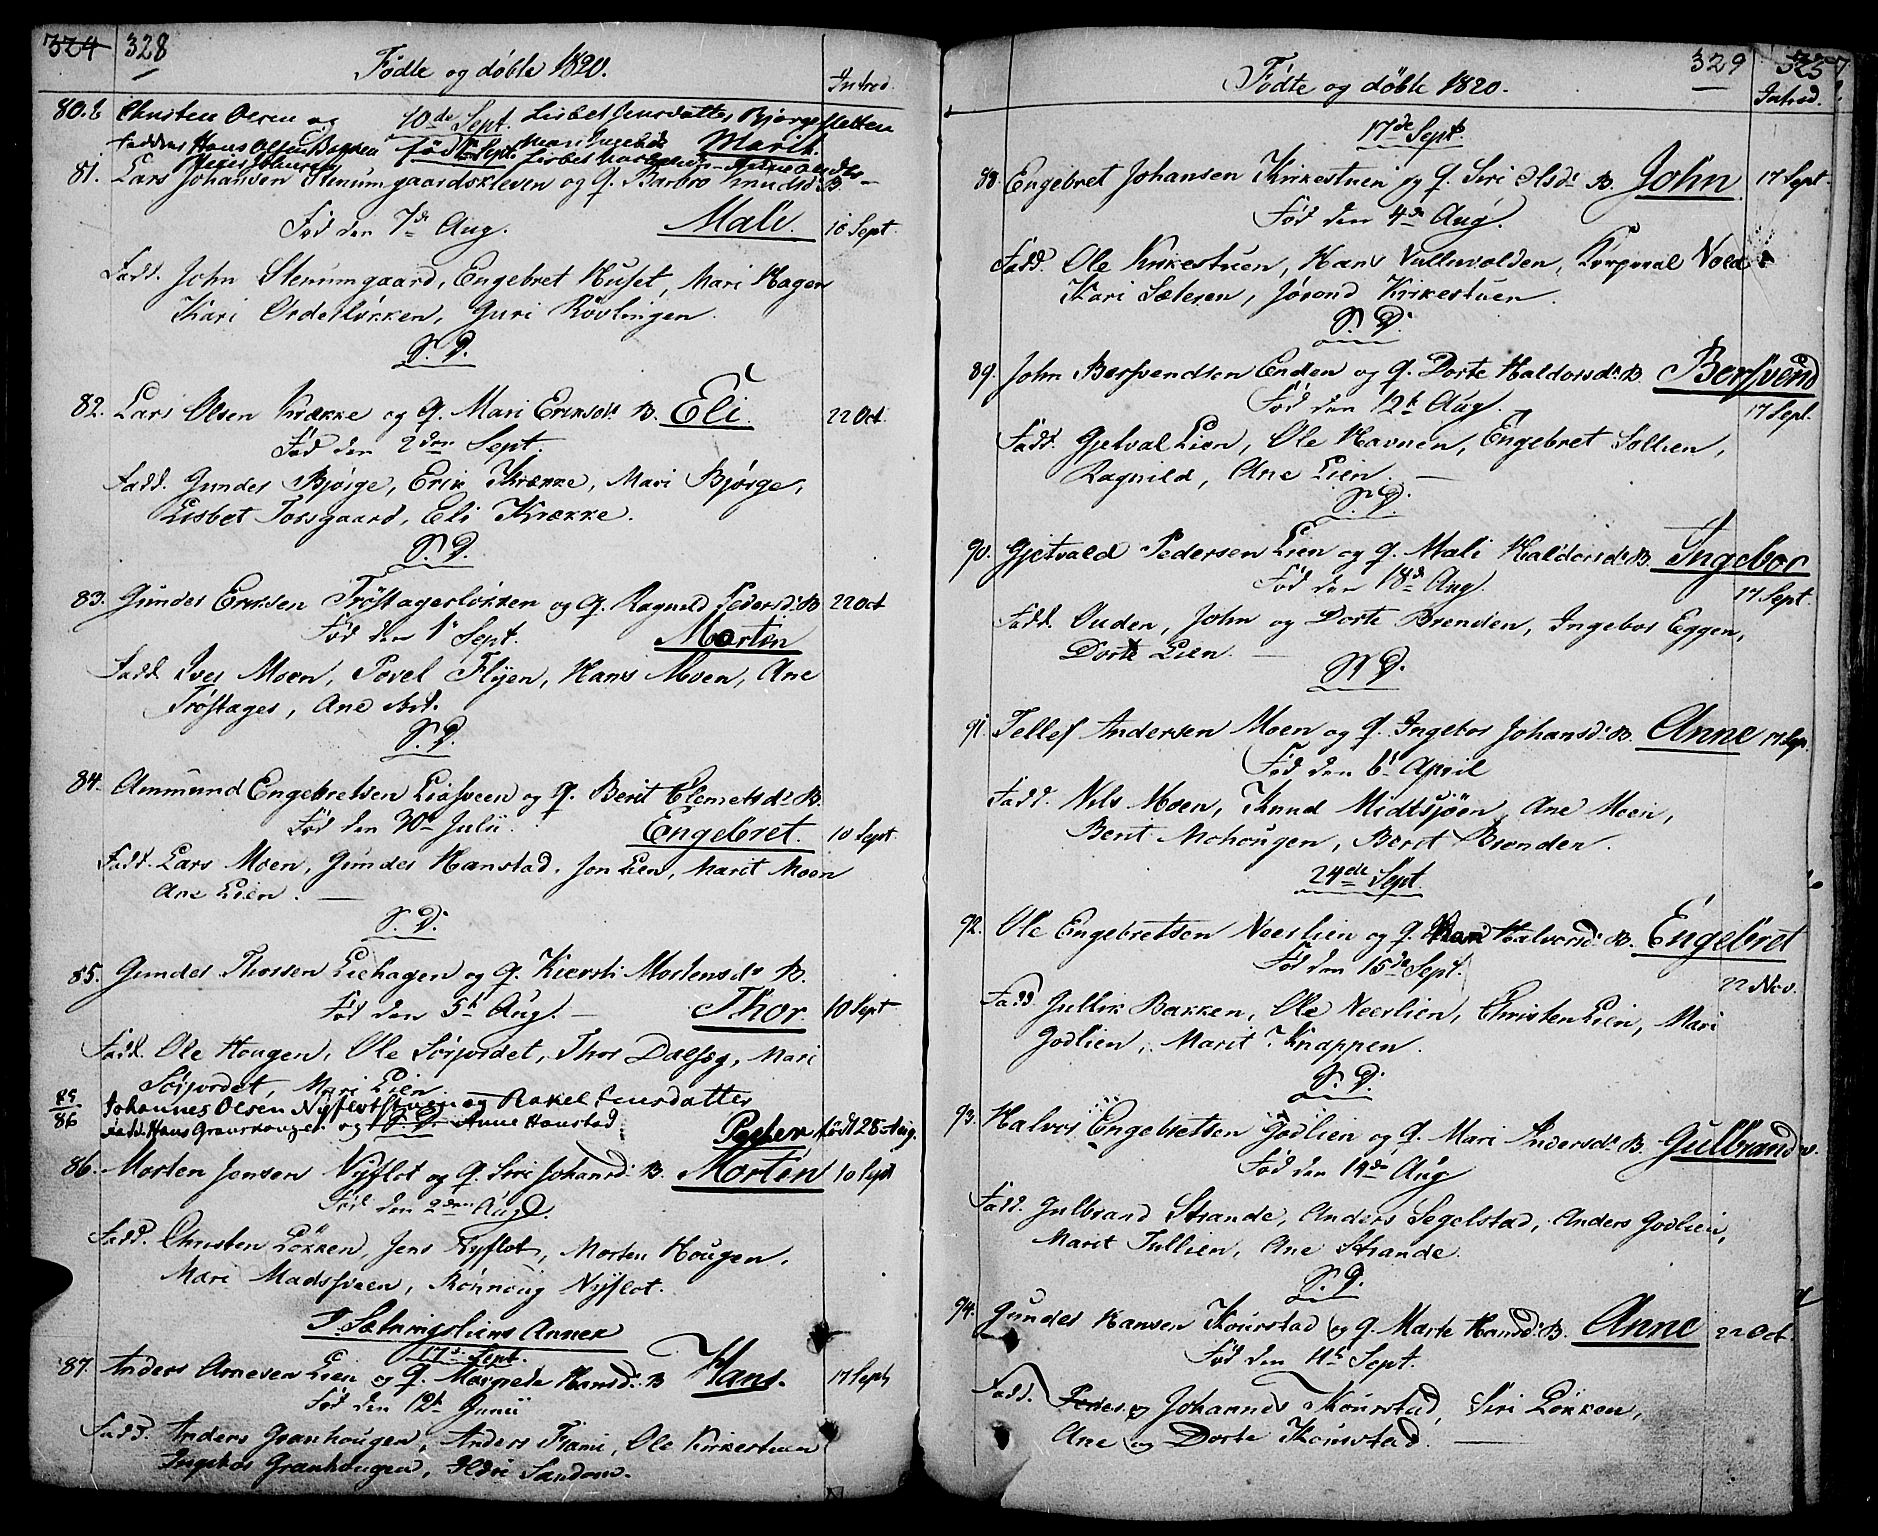 324 328
Fødte og døbte 1820.
Introd.
80.b Christen Olsen og 10de Sept. Lisbet Jensdatter Bjørgesletten
Faddere Hans Olsen Bakken født Sept. Marit.
81. Lars Johansen Stenumgaardskleven og q. Barbro Knudsd. B
Fød den 7de Aug. Mali. 10 Sept.
Fadd. John Stenumgaard, Engebret Huset, Mari Hagen
Kari Ordesløkken, Guri Røvlingen.
S. D.
82. Lars Olsen Krække og q. Mari Eriksdr B. Eli. 22 Oct.
Fød den 2den Sept.
Fadd. Gunder Bjørge, Erik Krække, Mari Bjørge,
Lisbet Forsgaard, Eli Krække.
S. D.
83. Gunder Eriksen Trøstagerløkken og q. Ragnild Pedersd. B 22 Oct
Fød den 1. Sept. Morten
Fadd. Iver Moen, Povel Flyen, Hans Moen, Ane
Trøstager, Ane ibid.
S. D.
84. Ammund Engebretsen Liesveen og q. Berit Clemetsdr B.
Fød den 30te Julii. Engebret. 10 Sept.
Fadd. Lars Moen, Gunder Hanstad, Jon Lien, Marit Moen
Ane Lien.
S. D.
85. Gunder Thorsen Liehagen og q. Kiersti Mortensdr B.
Fød den 5te Aug. Thor 10 Sept
Fadd. Ole Hougen, Ole Sørjordet, Thor Dalseg, Mari
Sørjordet, Mari Lien
85/86 Johannes Olsen Nyflotstuen og Rakel Jensdatter
Fadd. Hans Granhougen og S. D. Anne Hanstad Peder født 28 Aug.
86. Morten Jensen Nyflot og q. Siri Johansd. B. Morten 10 Sept
Fød den 2den Aug.
Fadd. Christen Løkken, Jens Nyflot, Morten Hougen,
Mari Madssveen, Rønnoug Nyflot.
I Sætningsliens Annex
17de Sept.
87. Anders Arnesen Lien og q. Margrete Hansd. B Hans. 17 Sept
Fød den 12te Junii
Fadd. Anders Granhougen, Anders Frami, Ole Kirkestuen
Ingebor Granhougen, Ildri Sandom.
329 325
Fødte og døbte 1820.
Introd.
17de Sept
88. Engebret Johansen Kirkestuen og q. Siri Olsdr B. John 17 Sept.
Fød den 4de Aug.
Fadd. Ole Kirkestuen, Hans Vullurolden, Korporal Vold
Kari Sæteren, Jørond Kirkestuen.
S. D.
89. John Bersvendsen Enden og q. Dorte Haldorsdr B. Bersvend
Fød den 12te Aug. 17 Sept.
Fadd. Gjetval Lien, Ole Havnen, Engebret Sollien,
Ragnild, Ane Lien.
S. D.
90. Gjetvald Pedersen Lien og q. Mali Haldorsdr B. Ingebor
Fød den 18de Aug. 17 Sept.
Fadd. Ouden, John og Dorte Brenden, Ingebor Eggen,
Dorte Lien.
S. D.
91. Tellef Andersen Moen og q. Ingebor Johansd. B. Anne 17 Sep.
Fød den 6te April
Fadd. Nils Moen, Knud Midtsjøen, Ane Moen,
Berit Mohougen, Berit Brenden.
24de Sept.
92. Ole Engebretsen Neerlien og q. Halvorsd. B. Engebret
Fød den 15de Sept. 22 Nov.
Fadd. Jullik Bakken, Ole Neerlien, Christen Lien, Mari
Godlien, Marit Knappen.
S. D.
93. Halvor Engebretsen Godlien og q. Mari Andersdr B. Gulbrand
Fød den 19de Aug
Fadd. Gulbrand Strande, Anders Segelstad, Anders Godlien,
Marit Tullien, Ane Strande.
S. D.
94. Gunder Hansen Konrstad og q. Marte Hansd. B. Anne 22 Oct.
Fød den 11te Sept.
Fadd. Peder og Johannes Konrstad, Siri Løkken,
Ane og Dorte Konrstad.